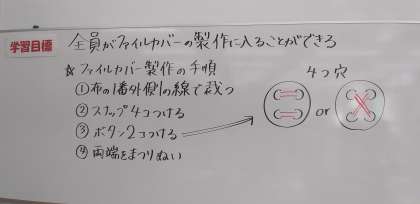 学習目標
全員がファイルカバーの製作に入ることができる
☆ファイルカバー製作の手順
①布の1番外側の線で裁つ
②スナップ4コつける
③ボタン2コつける
④両端をまつりぬい
4つ穴
or